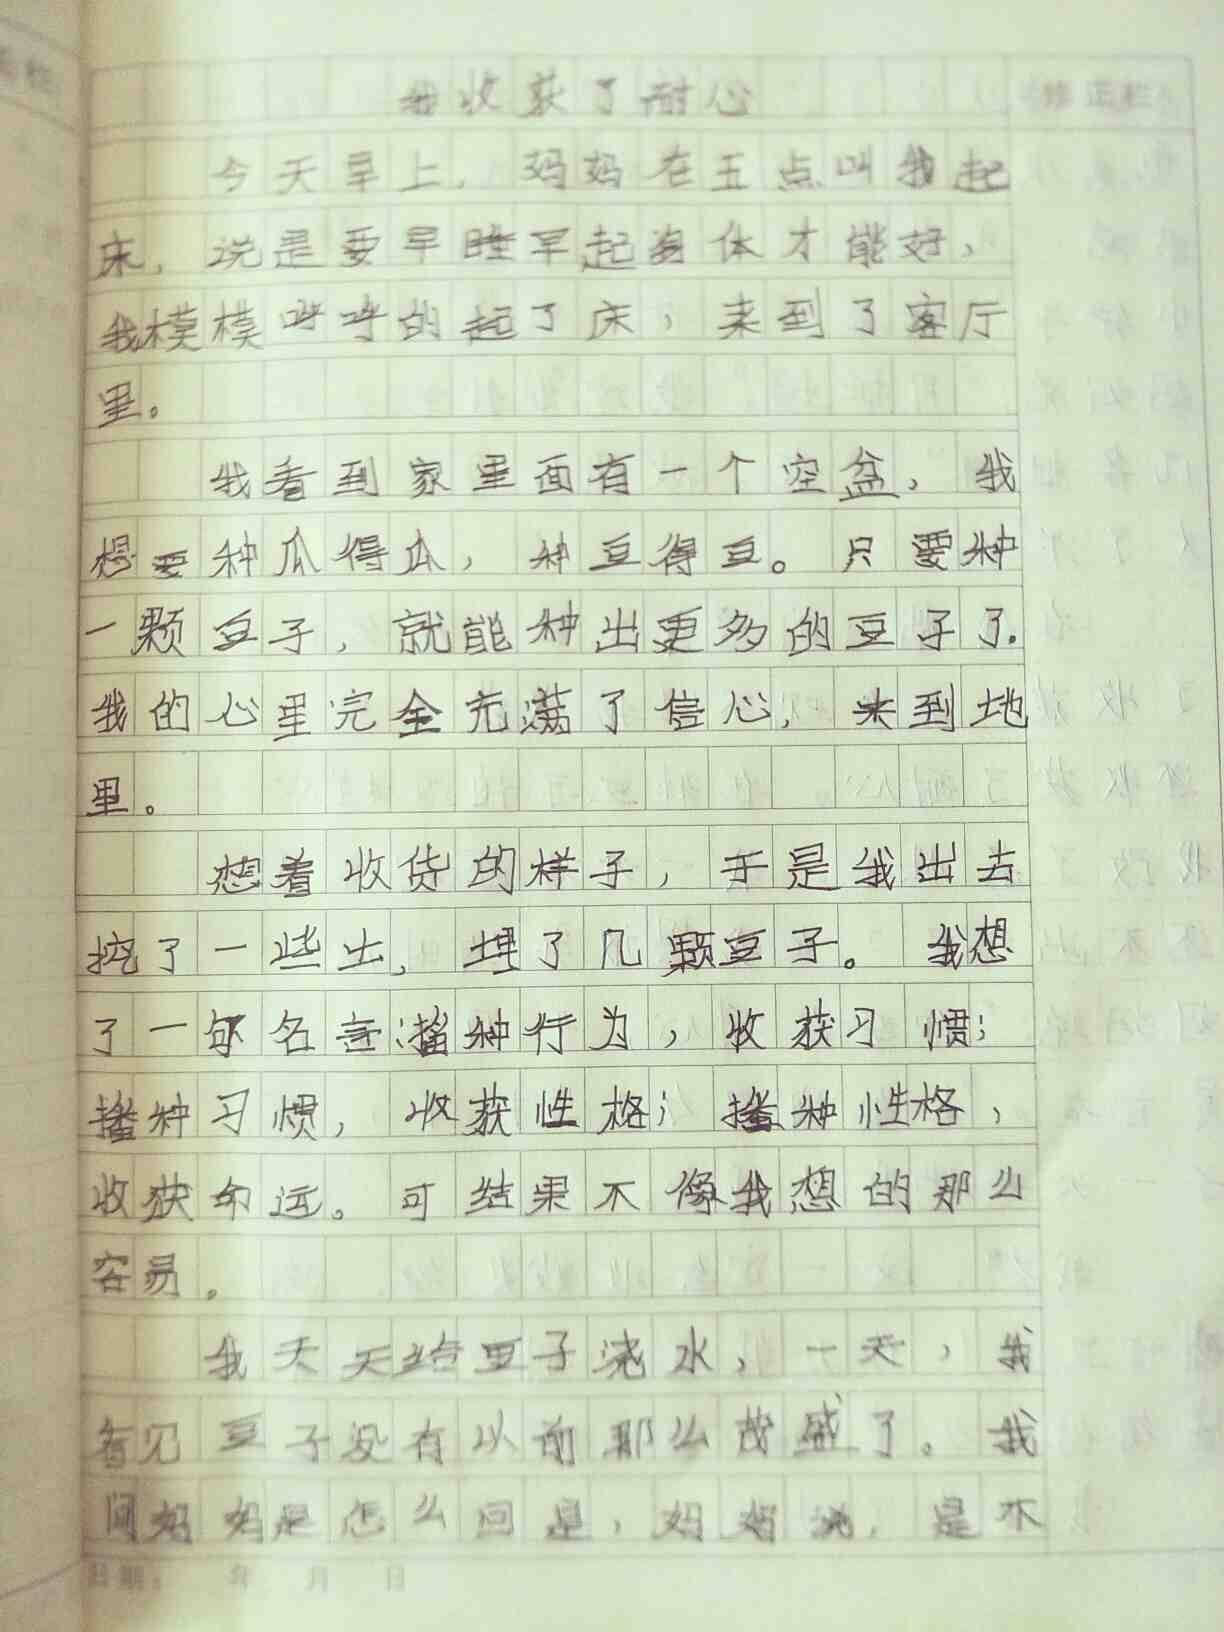 我收获了耐心
修正栏
今天早上，妈妈在五点叫我起
床，说是要早睡早起身体才能好，
我模模呼呼的起了床，来到了客厅
里。
我看到家里面有一个空盆，我
想要种瓜得瓜，种豆得豆。只要种
一颗豆子，就能种出更多的豆子了.
我的心里完全充满了信心，来到地
里。
想着收货的样子，于是我出去
挖了一些土，埋了几颗豆子。我想
了一句名言:播种行为，收获习惯；
播种习惯，收获性格；播种性格，
收获命运。可结果不像我想的那么
容易。
我天天给豆子浇水，一天，我
看见豆子没有以前那么茂盛了。我
问妈妈是怎么回是，妈妈说，是不
日期： 年 月 日